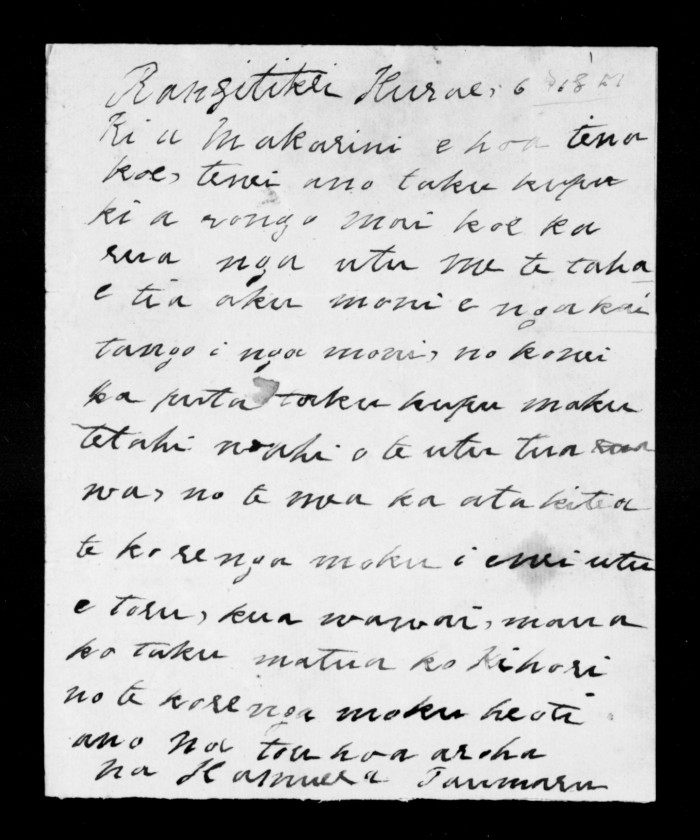 Rangitikei Hurae, 6 1871
Ki a Makarini e hoa tena
koe, tenei ano taku kupu
ki a rongo mai koe ka
rua nga utu me te taha
e tia aku moni e nga kai
tango i nga moni, no konei
ka puta taku kupu maku
tetahi wahi o te utu tua
wa, no te mea ka ata kitea
te korenga moku i enei utu
e toru, kua wawai, maua
ko taku matua ko Kihori
no te korenga moku heoti
ano Na tou hoa aroha
na Hamuera Taumaru